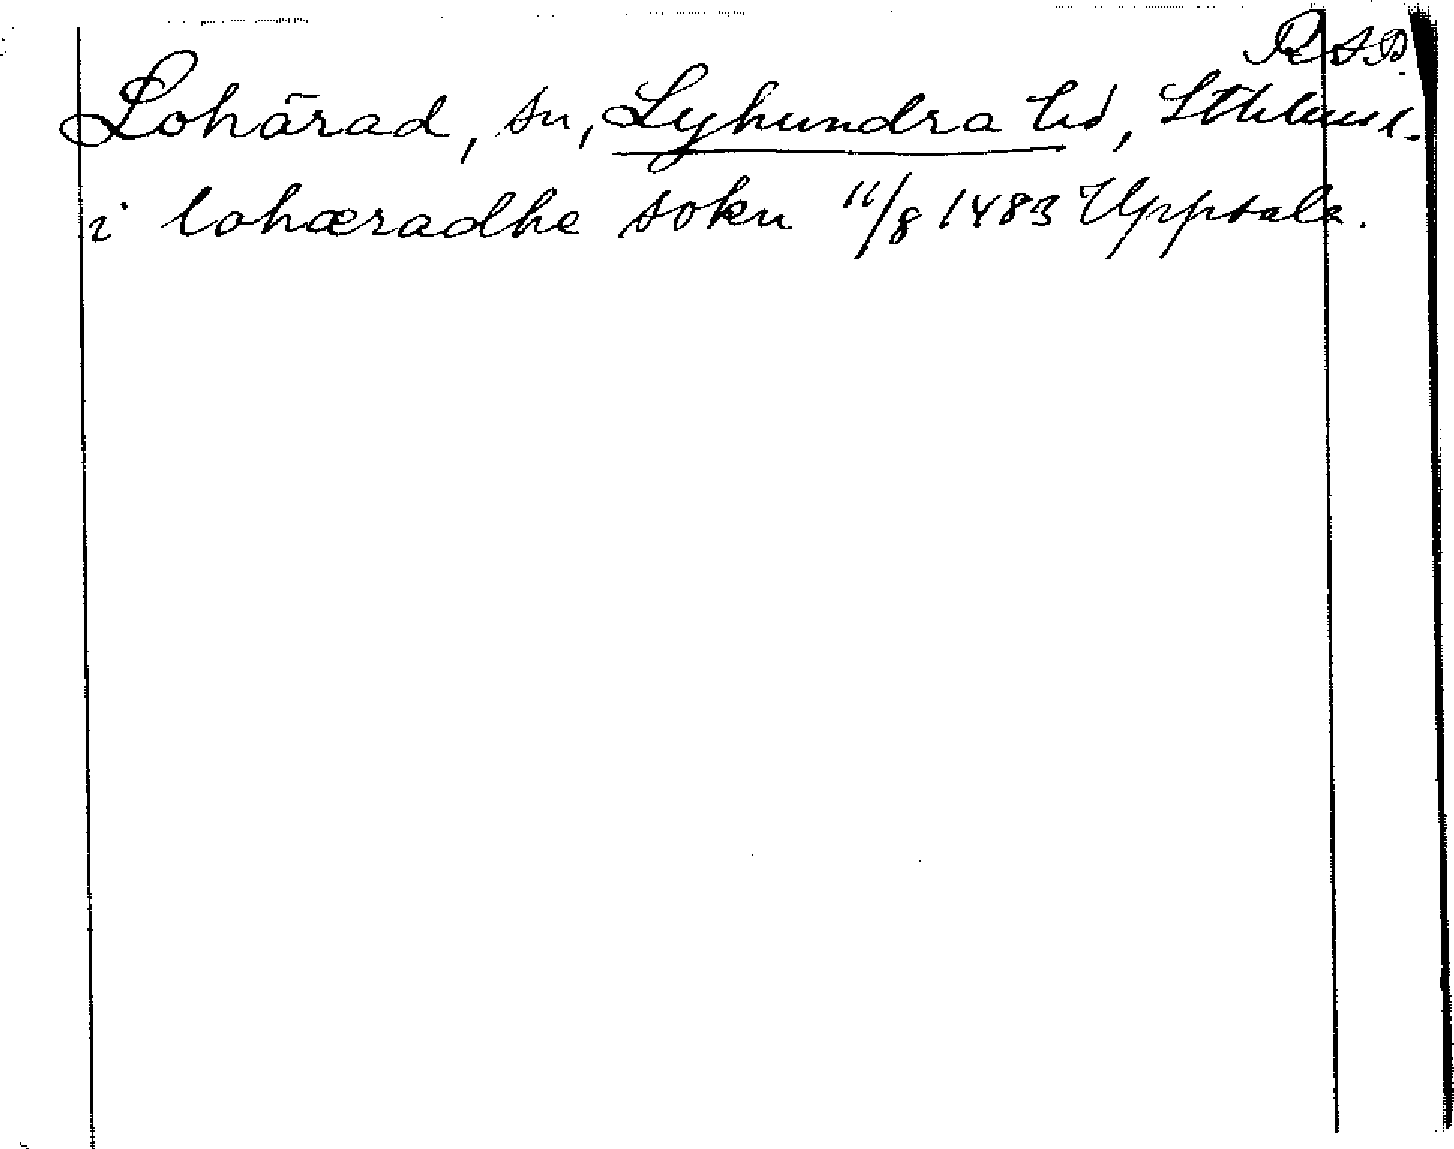 RAP.
Lohärad, sn, Lyhundra hd, Sthlms l.
i lohæradhe sokn 11/8 1483 Uppsala.